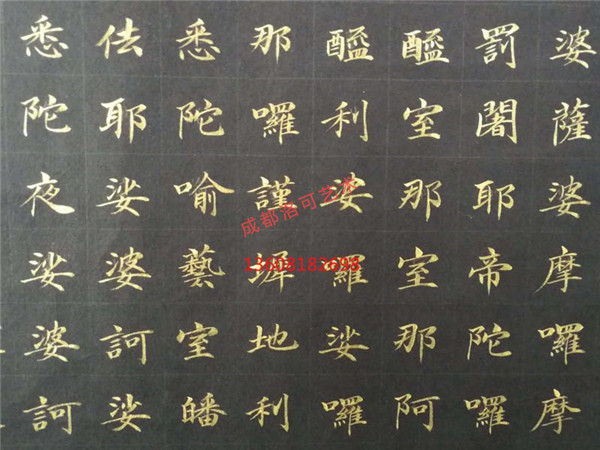 婆薩婆摩囉摩
罰闍耶帝陀囉
醯室那室那阿
醯利娑囉娑囉
那囉謹墀地利
悉陀喻藝室皤
佉耶娑婆訶娑
悉陀夜娑婆訶
成都洛可艺术
13608182698